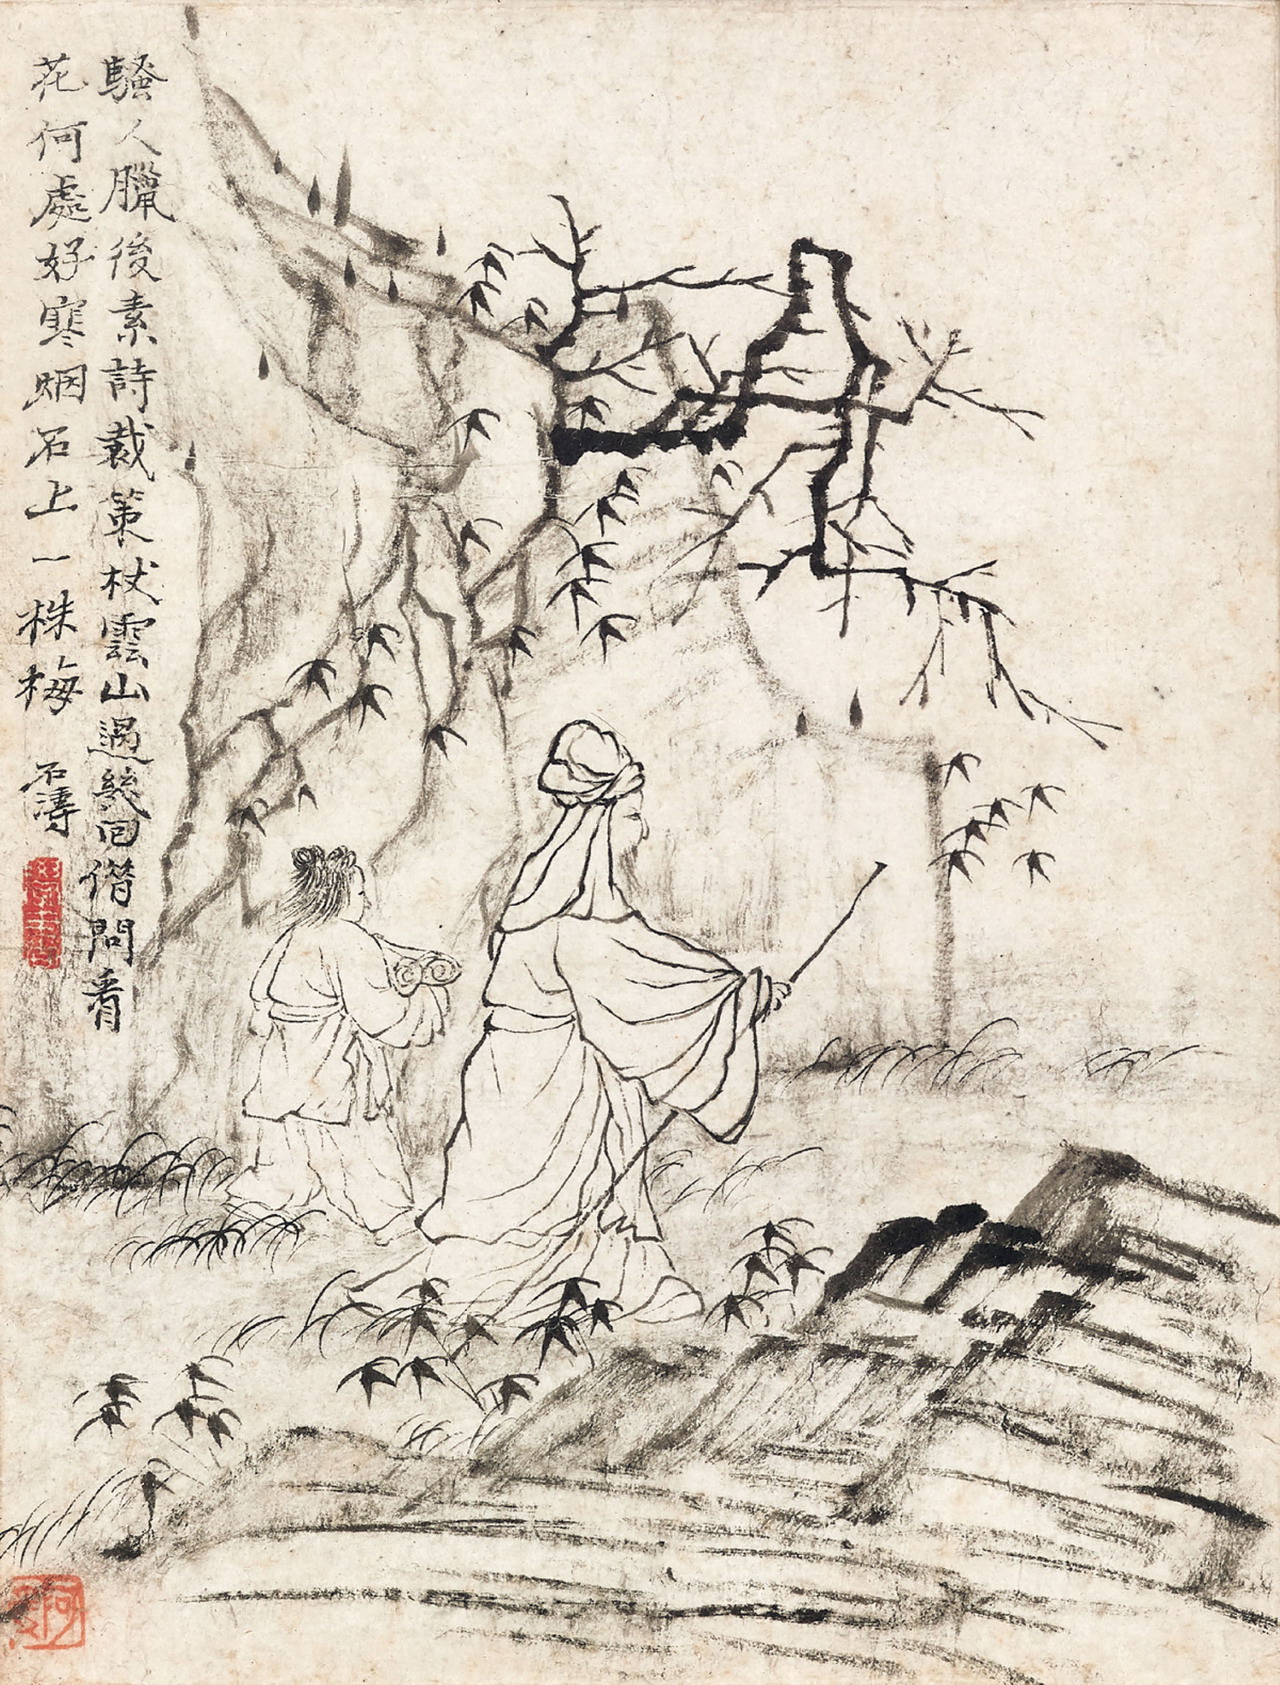 騷人臘後素詩裁策杖雲山過回借問看
花何處好寒烟石上一株梅 石濤